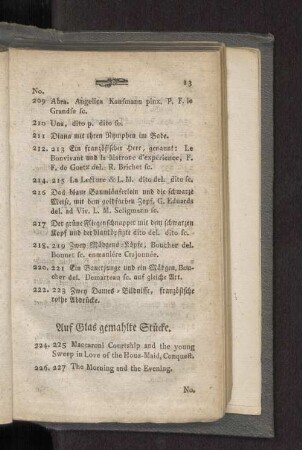 13
No.
209 Abra. Angelica Kaufmann pinx. P. F. le
Grandse sc.
210 Una, dito p. dito sc.
211 Diana mit ihren Nymphen im Bade.
212. 213 Ein französischer Herr, genannt: Le
Bonvivant und la Matrone d'experience, P.
F. de Goetz del. R. Brichet sc.
214. 215 La Lecture & L. M. dito del. dito sc.
216 Das blaue Baumläuferlein und die schwarze
Meise, mit dem goldfarben Kopf, G. Eduards
del. ad Viv. L. M. Seligmann sc.
217 Der grüne Fliegenschnapper mit dem schwarzen
Kopf und der blauköpfigte dito del. dito sc.
218. 219 Zwey Mädgens-Köpfe, Boucher del.
Bonnet sc. en maniére Crajonnée.
220. 221 Ein Bauerjunge und ein Mädgen, Bou-
cher del. Demarteau sc. auf gleiche Art.
222. 223 Zwey Dames-Bildnisse, französische
rothe Abdrücke.
Auf Glas gemahlte Stücke.
224. 225 Maccaroni Courtship and the young
Sweep in Love of the Hous-Maid, Conquest.
226. 227 The Morning and the Evening.
No.